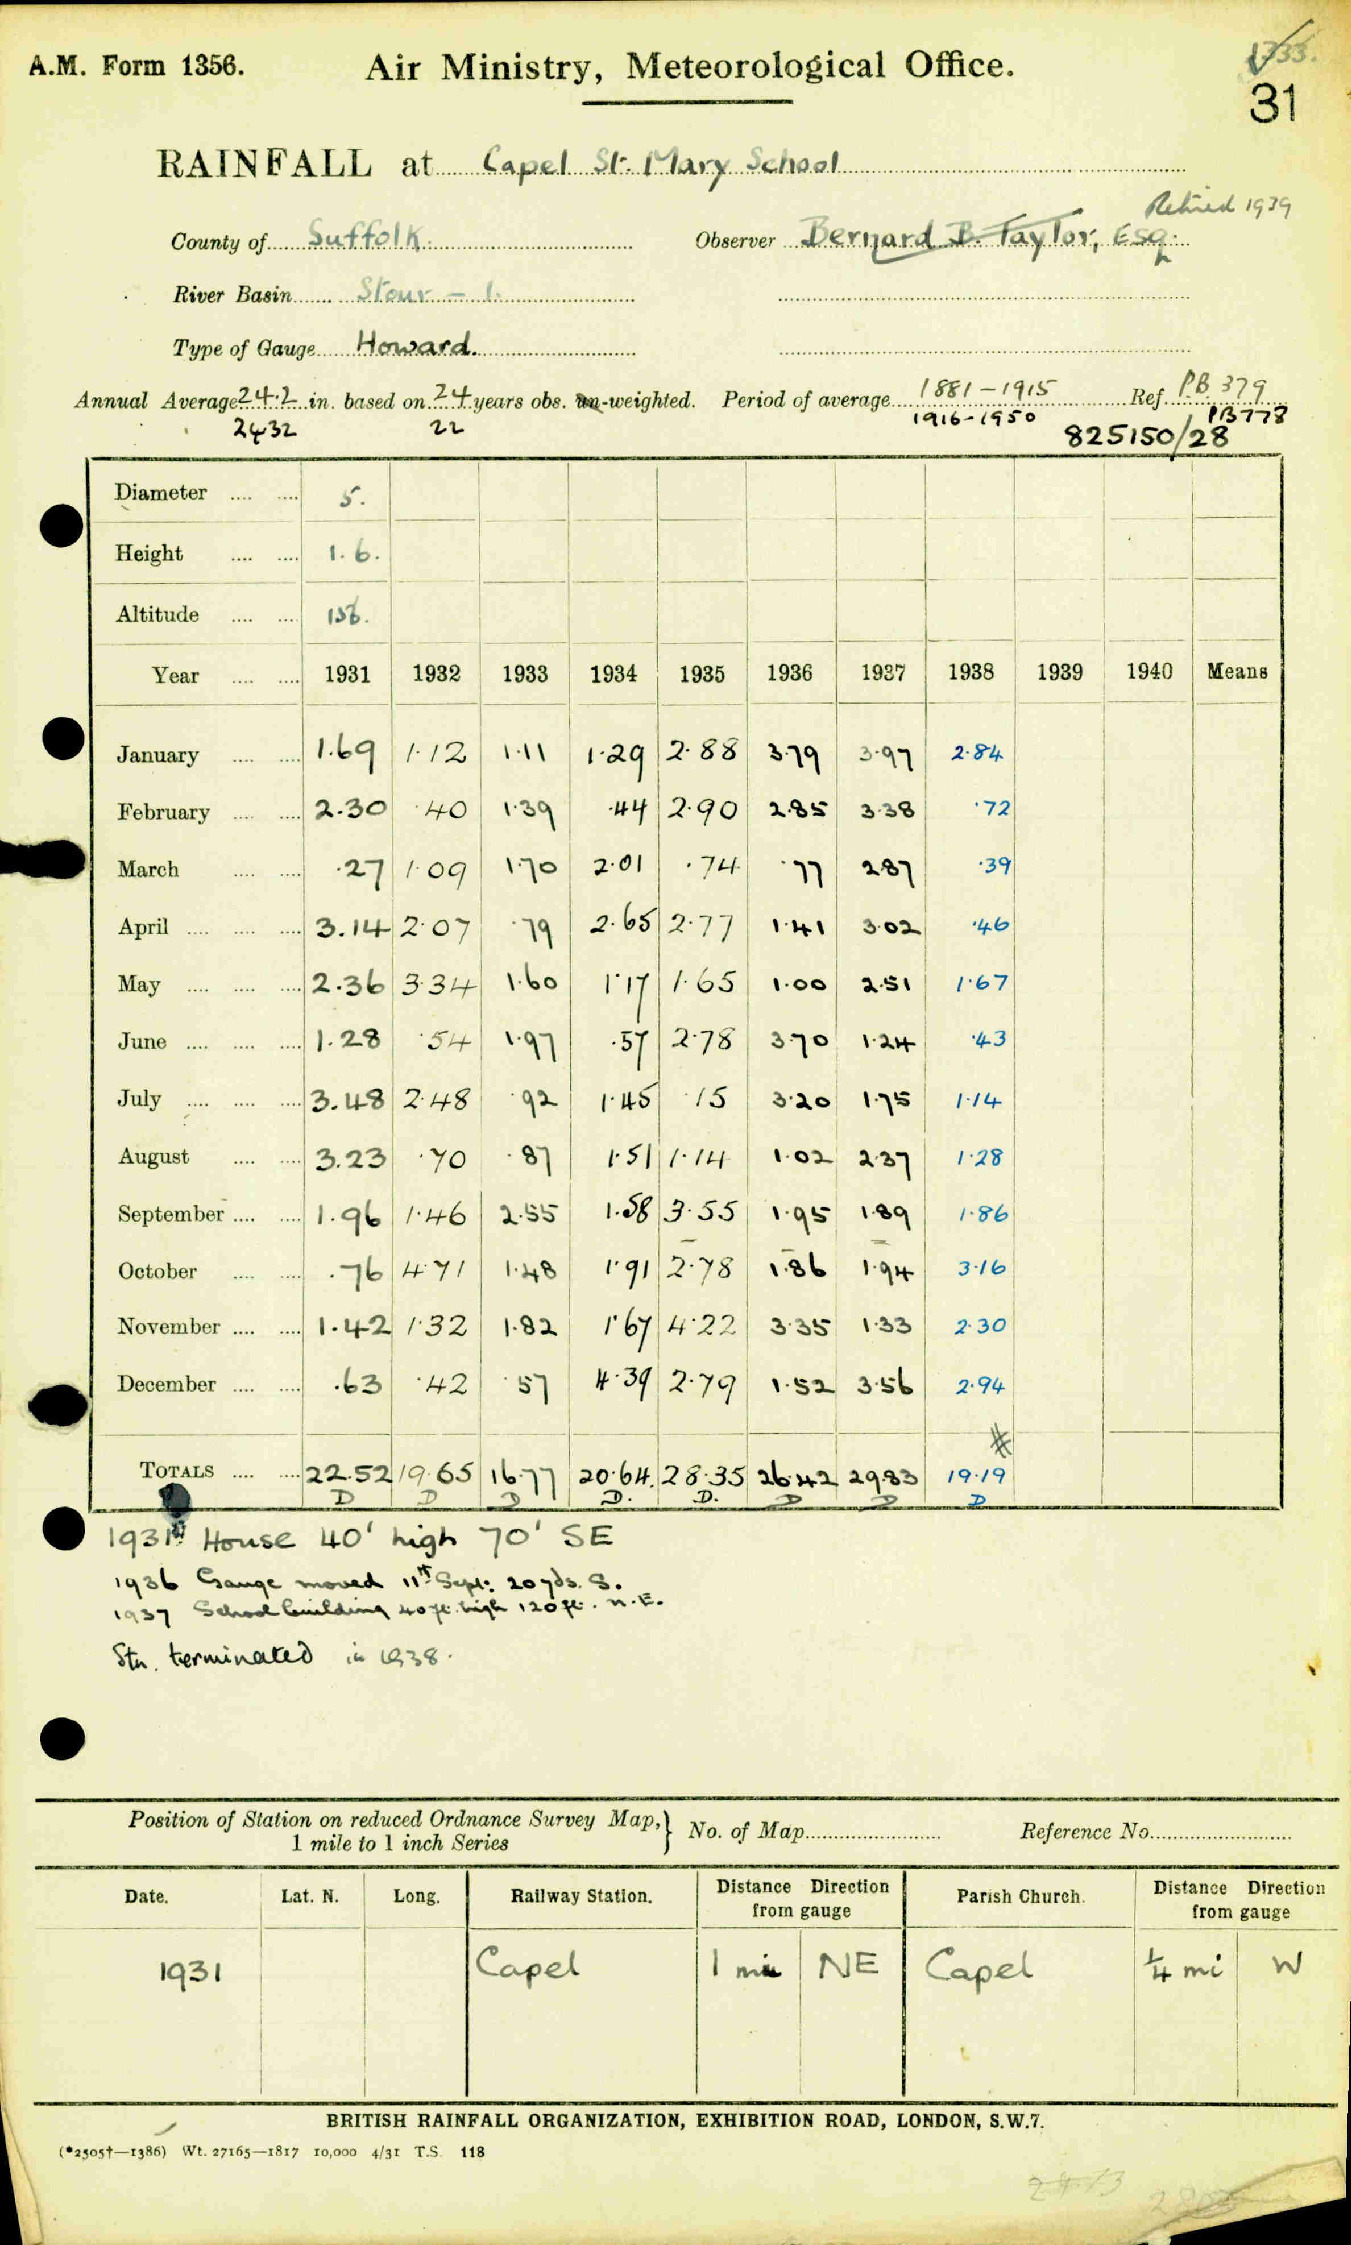 1333.
A.M. Form 1356. Air Ministry, Meteorological Office.
31
RAINFALL at Capel St. Mary School
Retired 1939
County of Suffolk. Observer Bernard B. Taylor, Esq.
River Basin Stour - 1.
Type of Gauge Howard.
Annual Average 24.2 in. based on 24 years obs. un-weighted. Period of average 1881-1915 Ref. P.B. 379
2432 22 1916-1950 PB778
825150/28
Diameter 5.
Height 1.6.
Altitude
Year 1931 1932 1933 1934 1935 1936 1937 1938 1939 1940 Means
January 1.69 1.12 1.11 1.29 2.88 3.79 3.97 2.84
February 2.30 .40 1.39 .44 2.90 2.85 3.38 .72
March .27 1.09 1.70 2.01 .74 .77 2.87 .39
April 3.14 2.07 .79 2.65 2.77 1.41 3.02 .46
May 2.36 3.34 1.60 1.17 1.65 1.00 2.51 1.67
June 1.28 .54 1.97 .57 2.78 3.70 1.24 .43
July 3.48 2.48 .92 1.45 .15 3.20 1.75 1.14
August 3.23 .70 .87 1.51 1.14 1.02 2.37 1.28
September 1.96 1.46 2.55 1.58 3.55 1.95 1.89 1.86
October .76 4.71 1.48 1.91 2.78 1.86 1.94 3.16
November 1.42 1.32 1.82 1.67 4.22 3.35 1.33 2.30
December .63 .42 .57 4.39 2.79 1.52 3.56 2.94
#
TOTALS 22.52 19.65 16.77 20.64. 28.35 26.42 29.83 19.19
D D D D. D. D D D
1931 House 40' high 70' SE
1936 Gauge moved 11th Sept: 20 yds. S.
1937 School building 40 ft. high 120 ft. N.E.
Stn. terminated in 1938.
Position of Station on reduced Ordnance Survey Map,} No. of Map Reference No.
1 mile to 1 inch Series
Date. Lat. N. Long. Railway Station. Distance Direction from gauge Parish Church. Distance Direction from gauge
1931 Capel 1 mi NE Capel ¼ mi W
BRITISH RAINFALL ORGANIZATION, EXHIBITION ROAD, LONDON, S.W.7.
(*2505†—1386) Wt. 27165—1817 10,000 4/31 T.S. 118